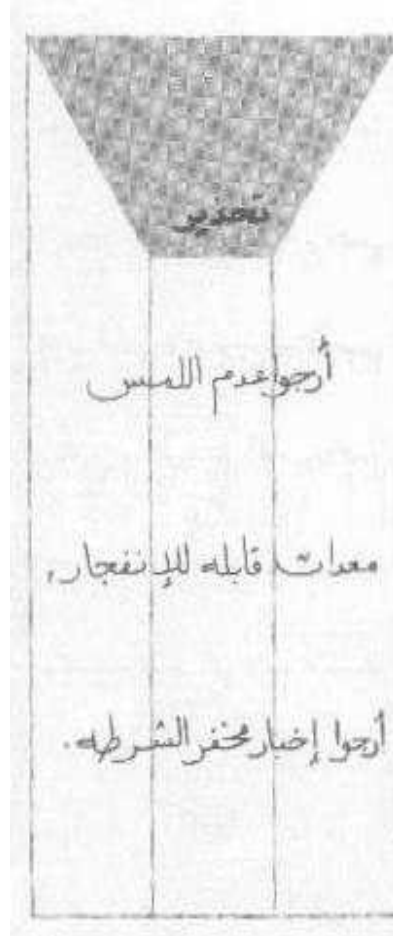 تحذير
أرجوا عدم اللمس
معدات قابله للإنفجار،
أرجوا إخبار مخفر الشرطه.